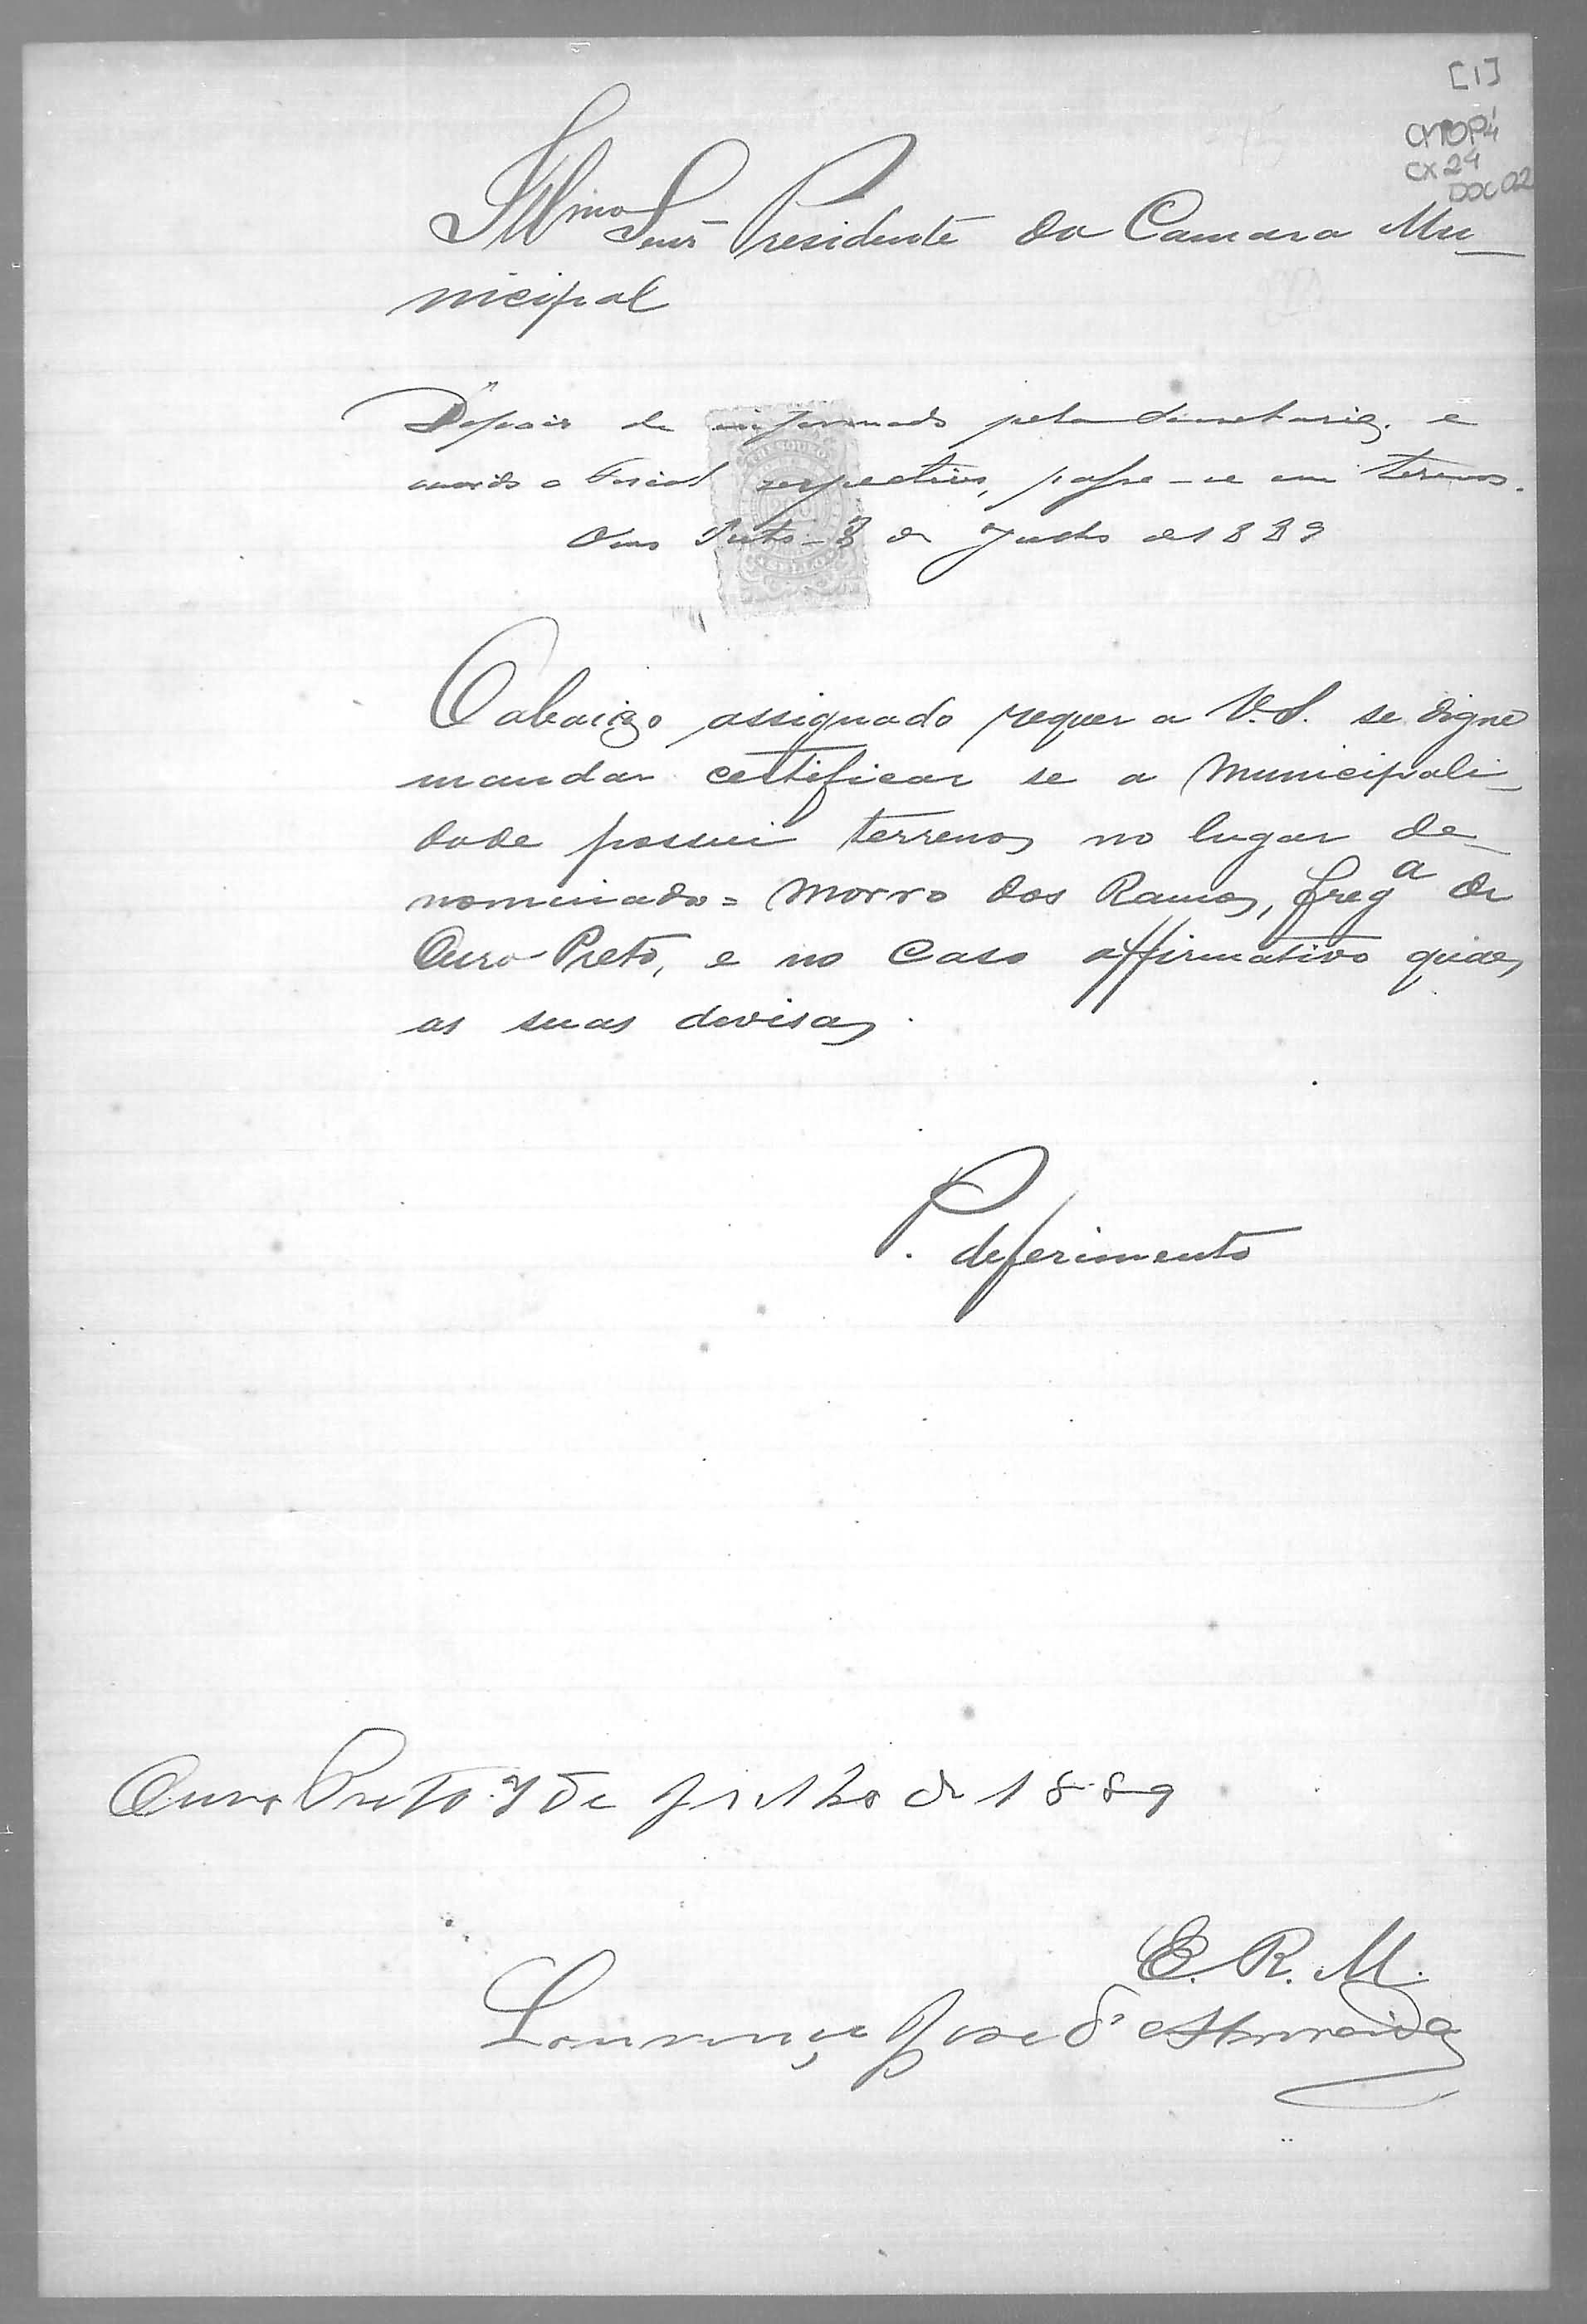 [1]
CMOP4
CX 24
DOC 02
Illmo Senr Presidente da Camara Mu-
nicipal
Depois de informado pela Secretaria, e
ouvido o Fiscal respectivo, passe-se em termos.
Ouro Preto - 8 de Julho de 1889
O abaixo assignado requer a V.S. se digne
mandar certificar se a Municipali-
dade possui terrenos no lugar de-
nominado = Morro dos Ramos, Frega de
Ouro Preto, e no caso affirmativo quaes
as suas devisas.
P. deferimento
Ouro Preto 7 de Julho de 1889
E. R. M.
Lourenço Jose d'Almeida